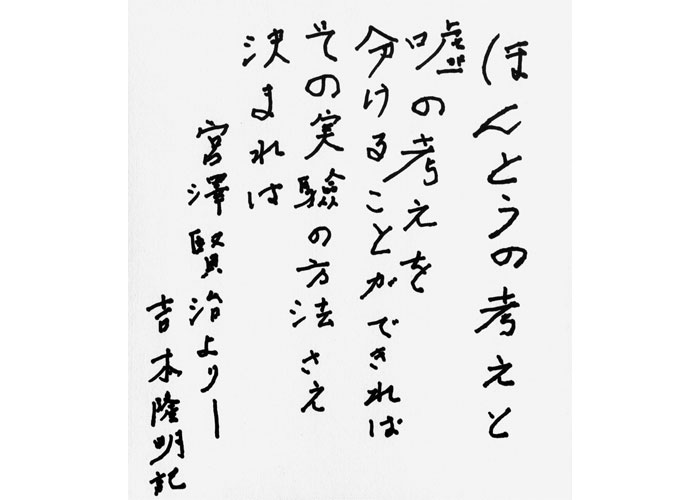 ほんとうの考えと
嘘の考えを
分けることができれば
その実験の方法さえ
決まれば
宮澤賢治よりー
吉本隆明記